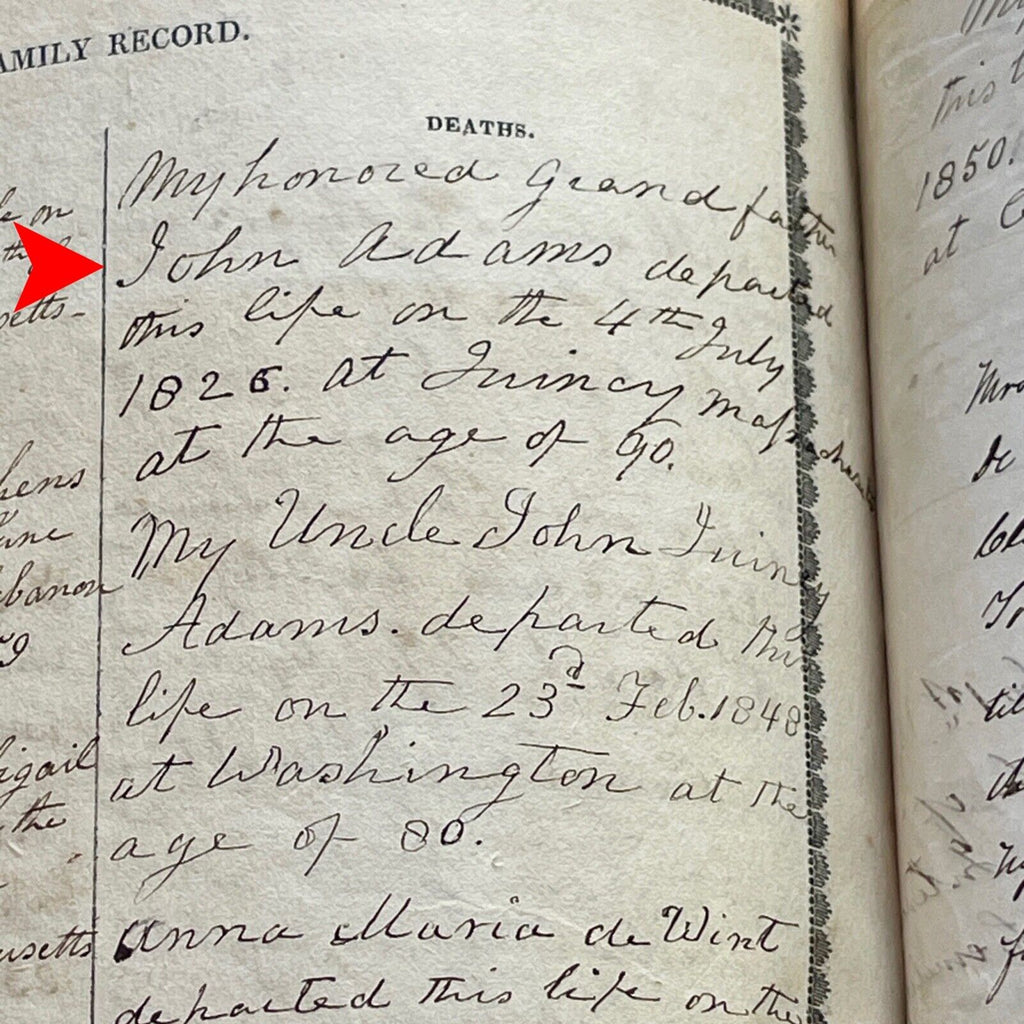 FAMILY RECORD.
DEATHS.
My honored Grand father
John Adams departed
this life on the 4th July
1826. at Quincy Massachusetts
at the age of 90.
My Uncle John Quincy
Adams. departed this
life on the 23d Feb. 1848
at Washington at the
age of 80.
Anna Maria de Wint
departed this life on the
on
setts-
hens
Lebanon
Abigail
the
usetts
this
1850.
at
de